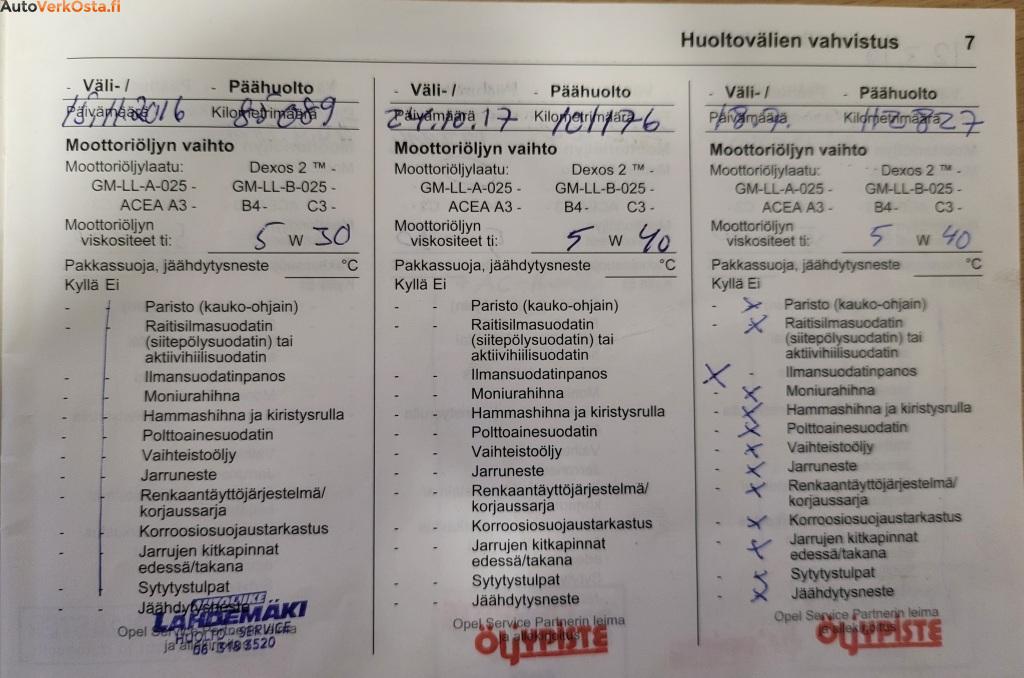 AutoVerkOsta.fi
Huoltovälien vahvistus 7
- Väli- / - Päähuolto
Päivämäärä Kilometrimäärä
11.2016 85089.
Moottoriöljyn vaihto
Moottoriöljylaatu: Dexos 2 ™ -
GM-LL-A-025 - GM-LL-B-025 -
ACEA A3 - B4- C3 -
Moottoriöljyn
viskositeet ti: 5 W 30
Pakkassuoja, jäähdytysneste °C
Kyllä Ei
- Paristo (kauko-ohjain)
- Raitisilmasuodatin
(siitepölysuodatin) tai
aktiivihiilisuodatin
- - Ilmansuodatinpanos
- - Moniurahihna
- - Hammashihna ja kiristysrulla
- - Polttoainesuodatin
- - Vaihteistoöljy
- - Jarruneste
- - Renkaantäyttöjärjestelmä/
korjaussarja
- - Korroosiosuojaustarkastus
- - Jarrujen kitkapinnat
edessä/takana
- - Sytytystulpat
- - Jäähdytysneste
Opel Service Partnerin leima
ja allekirjoitus
AUTOLIIKE
LÄHDEMÄKI
HUOLTO - SERVICE
06 318 3520
- Väli- / - Päähuolto
Päivämäärä Kilometrimäärä
24.10.17 101176
Moottoriöljyn vaihto
Moottoriöljylaatu: Dexos 2 ™ -
GM-LL-A-025 - GM-LL-B-025 -
ACEA A3 - B4- C3 -
Moottoriöljyn
viskositeet ti: 5 W 40
Pakkassuoja, jäähdytysneste °C
Kyllä Ei
- - Paristo (kauko-ohjain)
- - Raitisilmasuodatin
(siitepölysuodatin) tai
aktiivihiilisuodatin
- - Ilmansuodatinpanos
- - Moniurahihna
- - Hammashihna ja kiristysrulla
- - Polttoainesuodatin
- - Vaihteistoöljy
- - Jarruneste
- - Renkaantäyttöjärjestelmä/
korjaussarja
- - Korroosiosuojaustarkastus
- - Jarrujen kitkapinnat
edessä/takana
- - Sytytystulpat
- - Jäähdytysneste
Opel Service Partnerin leima
ja allekirjoitus
ÖLJYPISTE
- Väli- / - Päähuolto
Päivämäärä Kilometrimäärä
18.9. 112827
Moottoriöljyn vaihto
Moottoriöljylaatu: Dexos 2 ™ -
GM-LL-A-025 - GM-LL-B-025 -
ACEA A3 - B4- C3 -
Moottoriöljyn
viskositeet ti: 5 W 40
Pakkassuoja, jäähdytysneste °C
Kyllä Ei
- X Paristo (kauko-ohjain)
- X Raitisilmasuodatin
(siitepölysuodatin) tai
aktiivihiilisuodatin
X - Ilmansuodatinpanos
- X Moniurahihna
- X Hammashihna ja kiristysrulla
- X Polttoainesuodatin
- X Vaihteistoöljy
- X Jarruneste
- X Renkaantäyttöjärjestelmä/
korjaussarja
- X Korroosiosuojaustarkastus
- X Jarrujen kitkapinnat
edessä/takana
- X Sytytystulpat
- X Jäähdytysneste
Opel Service Partnerin leima
ja allekirjoitus
ÖLJYPISTE